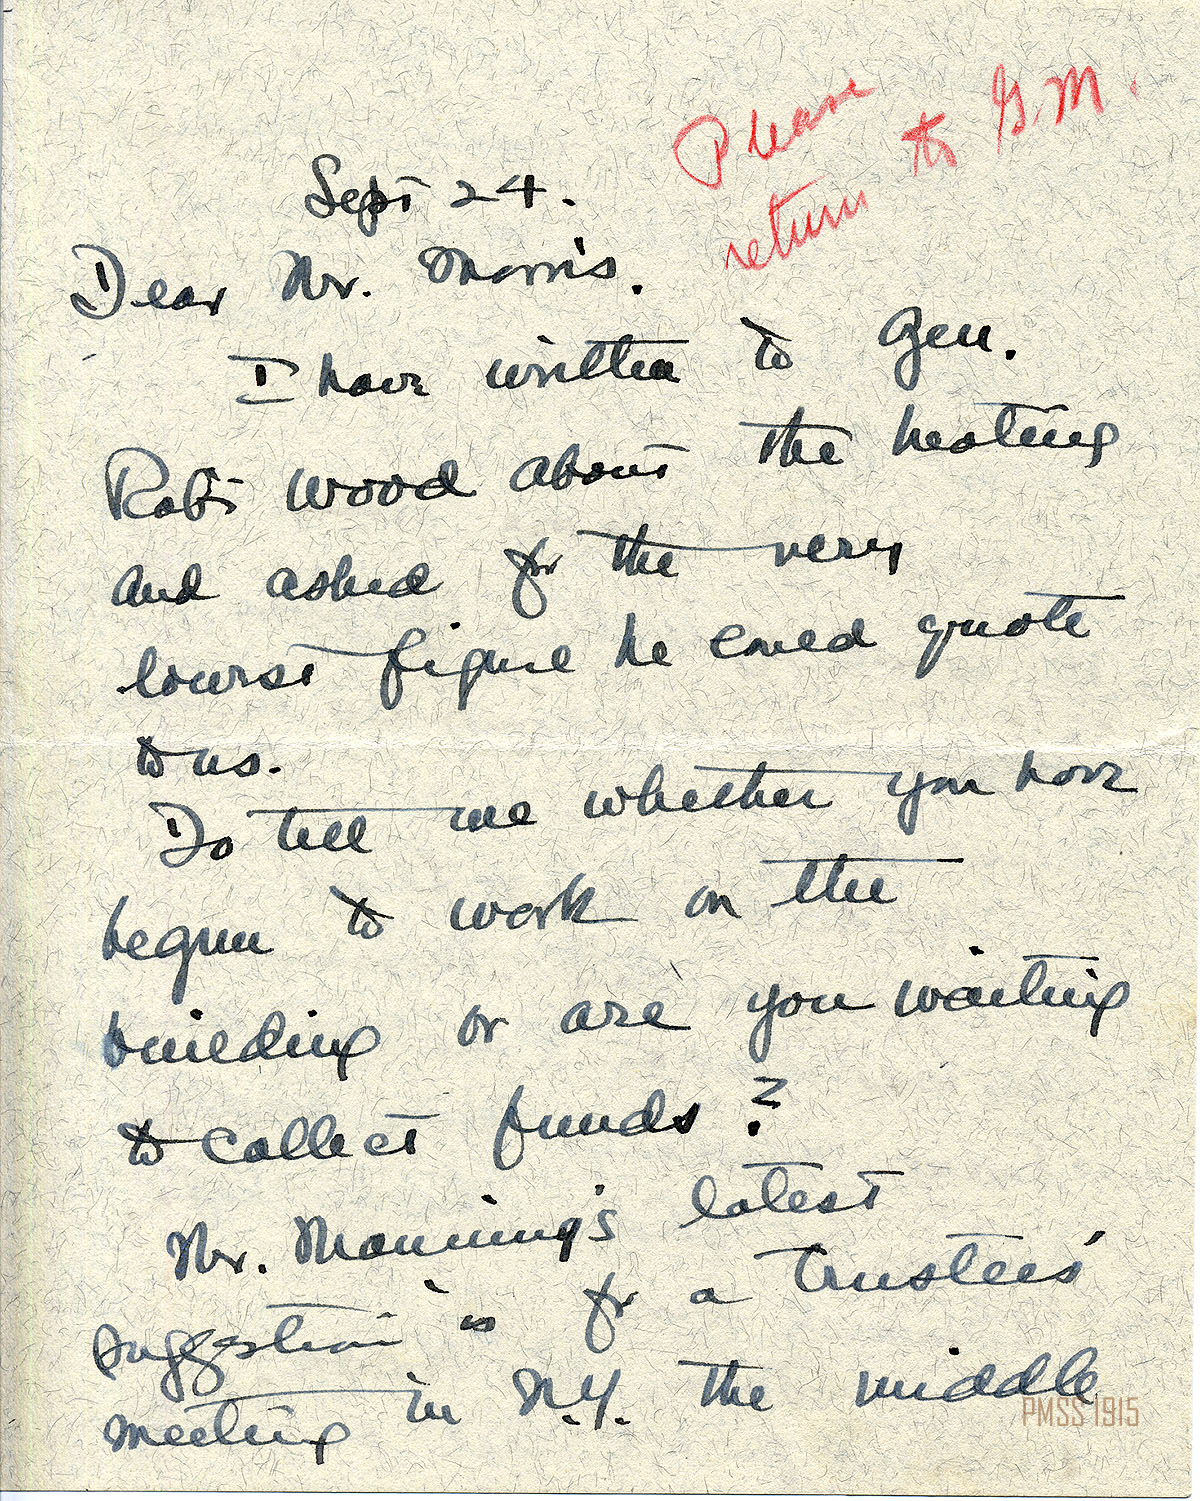 Please
return to G.M.
Sept 24.
Dear Mr. Morris.
I have written to Gen.
Robt Wood about the heating
and asked for the very
lowest figure he could quote
to us.
Do tell me whether you have
begun to work on the
building or are you waiting
to collect funds?
Mr. Manning's latest
suggestion is for a Trustees'
meeting in N.Y. the middle
PMSS 1915